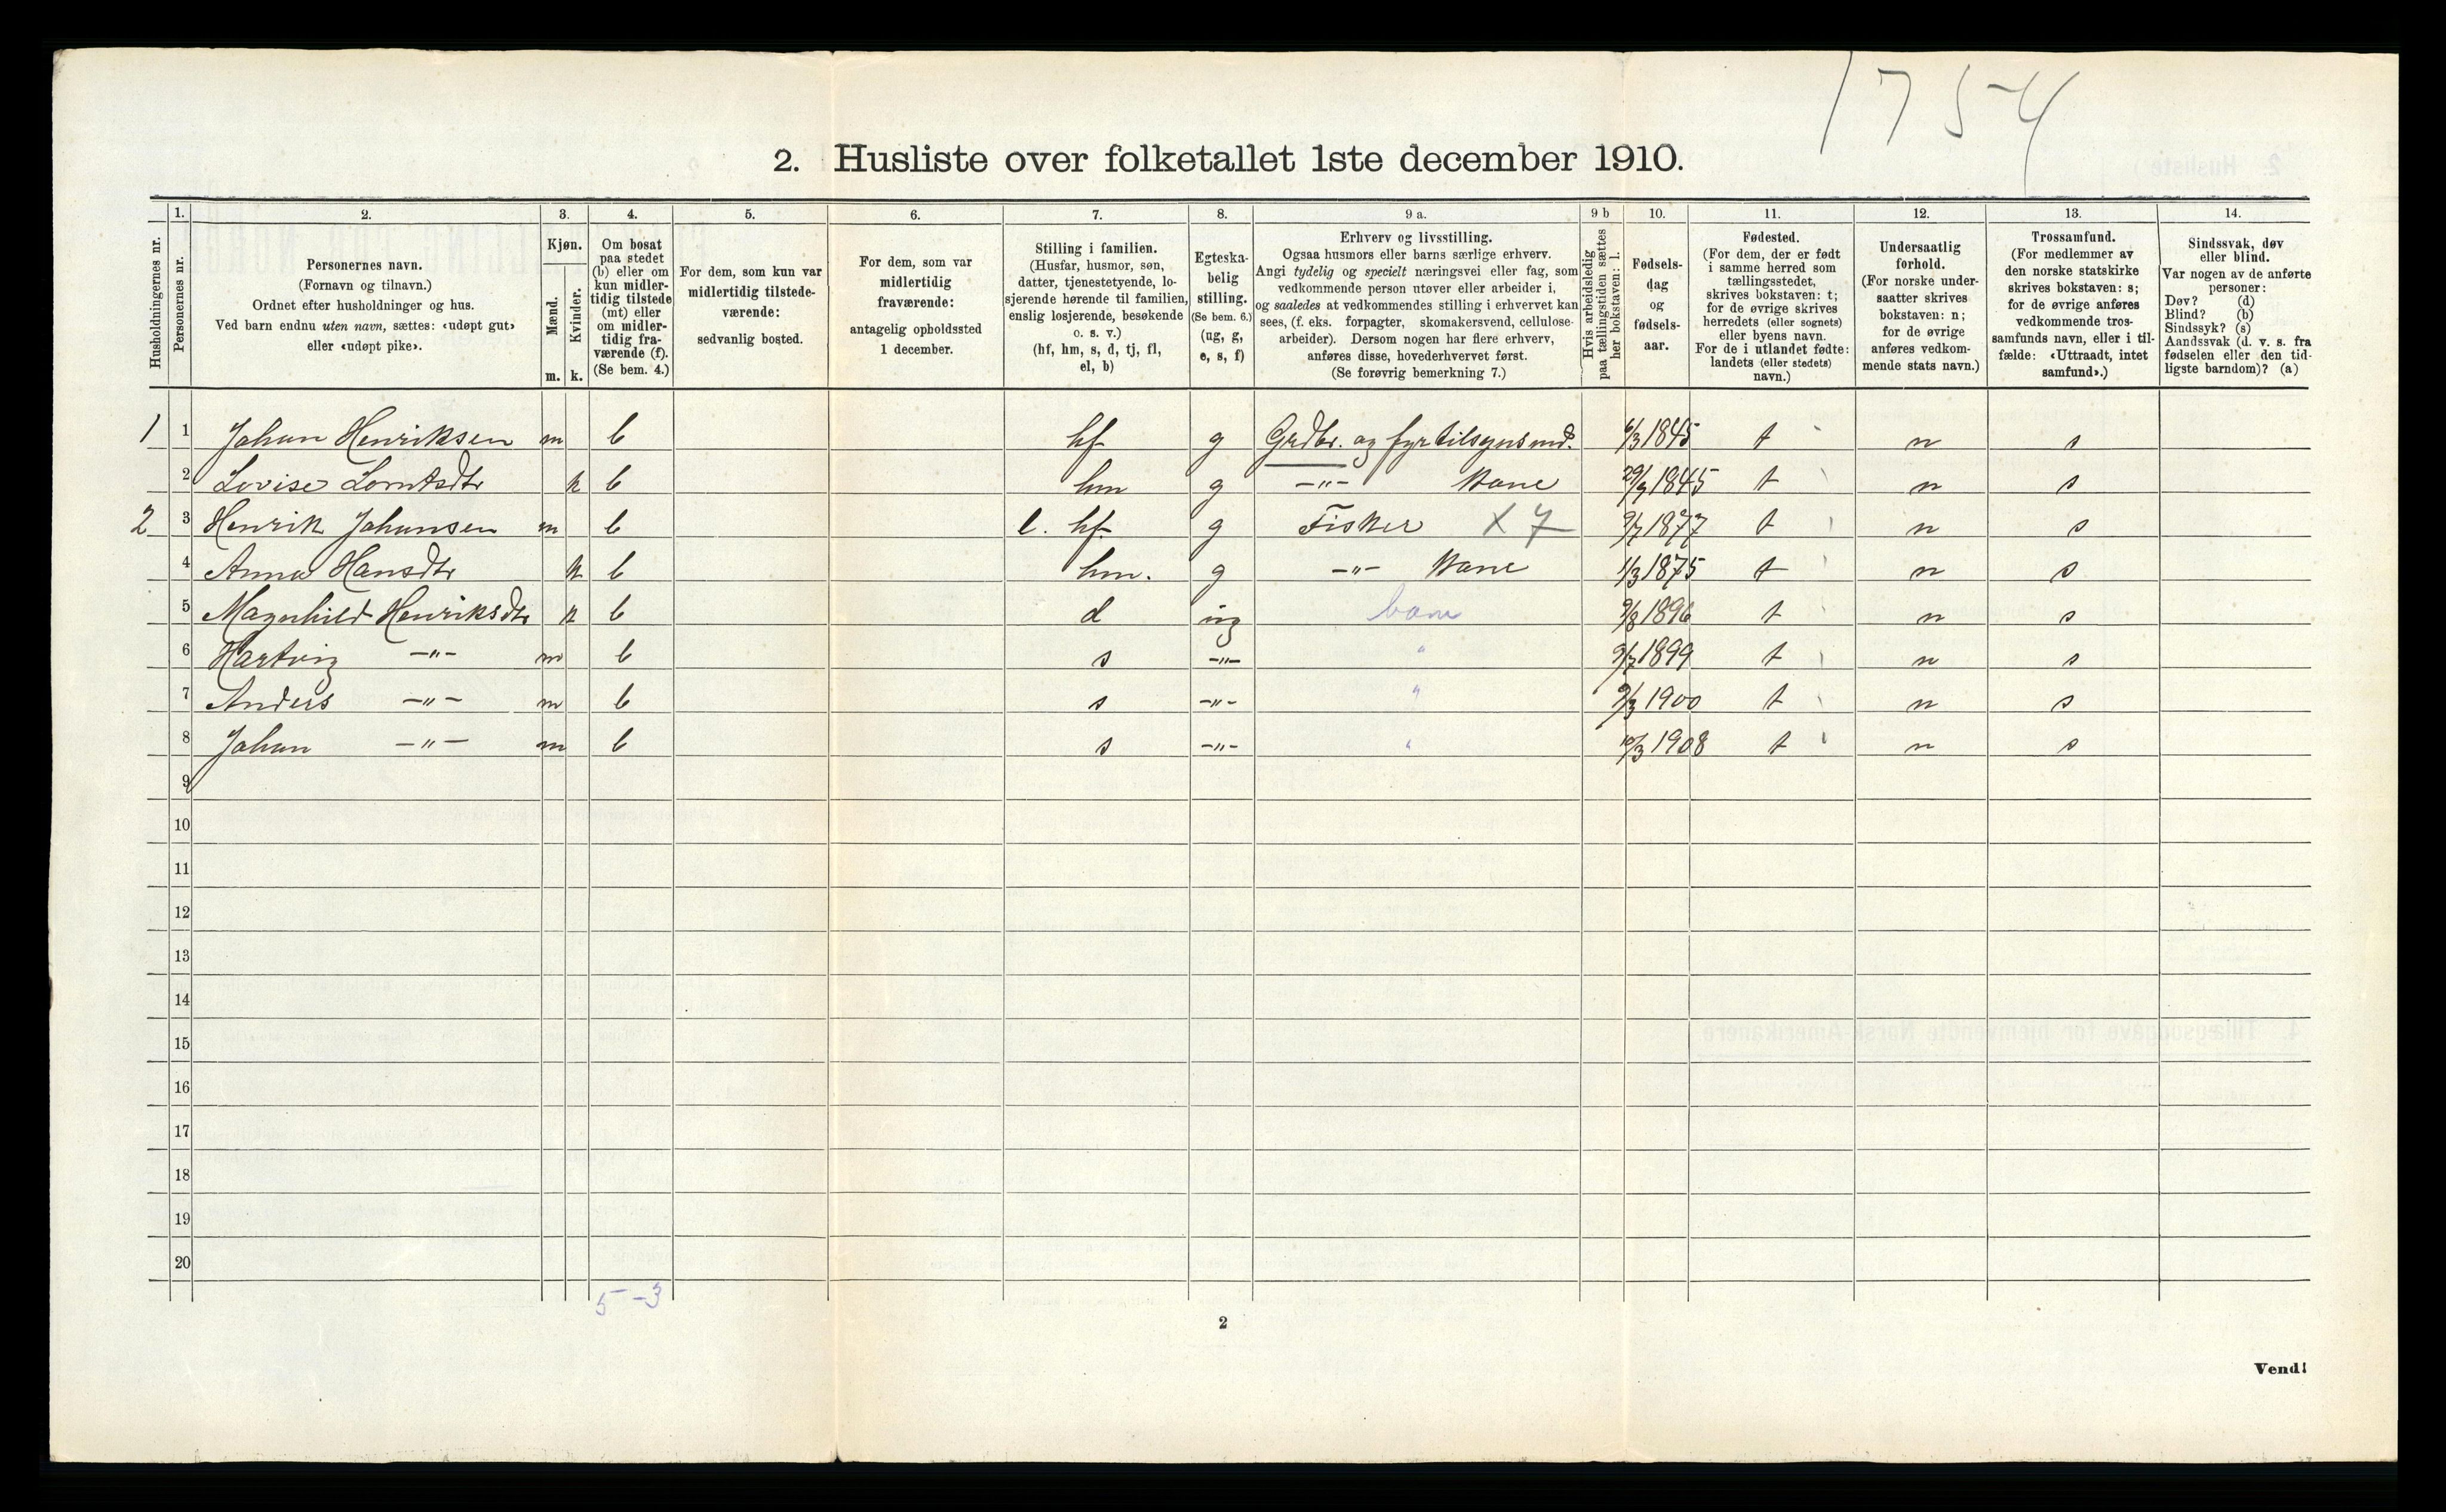 1754
2. Husliste over folketallet 1ste december 1910.
Husholdningernes nr.
1. Personernes nr.
2. Personernes navn.
(Fornavn og tilnavn.)
Ordnet efter husholdninger og hus.
Ved barn endnu uten navn, sættes: «udøpt gut»
eller «udøpt pike».
3. Kjøn.
Mænd. m.
Kvinder. k.
4. Om bosat
paa stedet
(b) eller om
kun midler-
tidig tilstede
(mt) eller
om midler-
tidig fra-
værende (f).
(Se bem. 4.)
5. For dem, som kun var
midlertidig tilstede-
værende:
sedvanlig bosted.
6. For dem, som var
midlertidig
fraværende:
antagelig opholdssted
1 december.
7. Stilling i familien.
(Husfar, husmor, søn,
datter, tjenestetyende, lo-
sjerende hørende til familien,
enslig losjerende, besøkende
o. s. v.)
(hf, hm, s, d, tj, fl,
el, b)
8. Egteska-
belig
stilling.
(Se bem. 6.)
(ug, g,
e, s, f)
9 a. Erhverv og livsstilling.
Ogsaa husmors eller barns særlige erhverv.
Angi tydelig og specielt næringsvei eller fag, som
vedkommende person utøver eller arbeider i,
og saaledes at vedkommendes stilling i erhvervet kan
sees, (f. eks. forpagter, skomakersvend, cellulose-
arbeider). Dersom nogen har flere erhverv,
anføres disse, hovederhvervet først.
(Se forøvrig bemerkning 7.)
9 b Hvis arbeidsledig
paa tællingstiden sættes
her bokstaven: l.
10. Fødsels-
dag
og
fødsels-
aar.
11. Fødested.
(For dem, der er født
i samme herred som
tællingsstedet,
skrives bokstaven: t;
for de øvrige skrives
herredets (eller sognets)
eller byens navn.
For de i utlandet fødte:
landets (eller stedets)
navn.)
12. Undersaatlig
forhold.
(For norske under-
saatter skrives
bokstaven: n;
for de øvrige
anføres vedkom-
mende stats navn.)
13. Trossamfund.
(For medlemmer av
den norske statskirke
skrives bokstaven: s;
for de øvrige anføres
vedkommende tros-
samfunds navn, eller i til-
fælde: «Uttraadt, intet
samfund».)
14. Sindssvak, døv
eller blind.
Var nogen av de anførte
personer:
Døv? (d)
Blind? (b)
Sindssyk? (s)
Aandssvak (d. v. s. fra
fødselen eller den tid-
ligste barndom)? (a)
1 1 Johan Henriksen m b hf g Grdbr. og fyrtilsynsmd. 6/3 1845 t n s
2 Lovise Lorntsdtr k b hm g -"- Kone 29/9 1845 t n s
2 3 Henrik Johansen m b l. hf. g Fisker X 7 9/7 1877 t n s
4 Anna Hansdtr k b hm. g -"- Kone 1/3 1875 t n s
5 Magnhild Henriksdtr k b d ug barn 9/8 1896 t n s
6 Hartvig -"- m b s -"- " 9/7 1899 t n s
7 Anders -"- m b s -"- " 9/3 1900 t n s
8 Johan -"- m b s -"- " 10/3 1908 t n s
9
10
11
12
13
14
15
16
17
18
19
20
5-3
2
Vend!